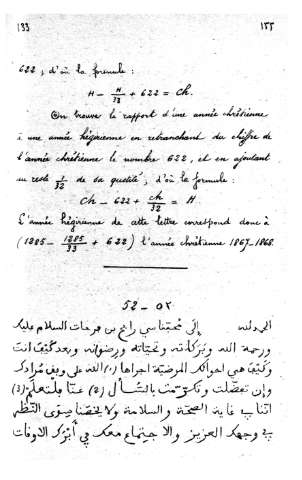 133 ١٣٣
622, d'où la formule :
H − H/33 + 622 = Ch.
On trouve le rapport d'une année chrétienne
à une année hégirienne en retranchant du chiffre de
l'année chrétienne le nombre 622, et en ajoutant
au reste 1/32 de sa quotité, d'où la formule :
Ch − 622 + Ch/32 = H.
L'année hégirienne de cette lettre correspond donc à
(1285 − 1285/33 + 622) l'année chrétienne 1867-1868.
52 — ٥٢
الحمد لله إلى محبّنا سي رابح بن فرحات السلام عليك
ورحمة الله وبركاته وتحيّاته ورضوانه وبعد كيف انت
وكيف هي احوالك المرضيّة اجراها (1) الله على وفق مرادك
وإن تفضّلت وتكرّمت بالسُّأل (2) عنّا فلتعلم (3)
اننا في غاية الصحّة والسلامة ولا يخصّنا سوى النّظر
في وجهك العزيز والاجتماع معك في أبرك الاوقات